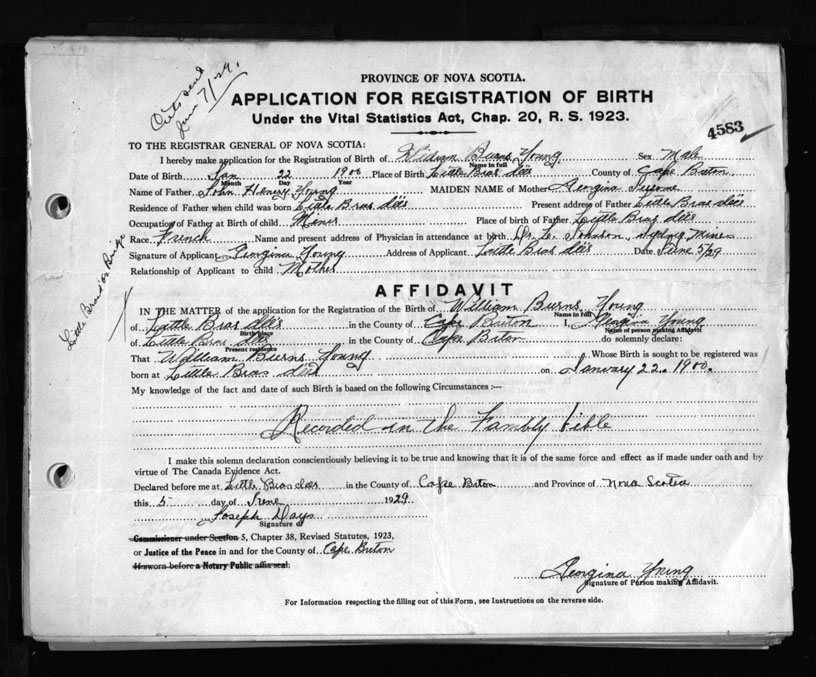 PROVINCE OF NOVA SCOTIA.
June 7/29.
APPLICATION FOR REGISTRATION OF BIRTH
Under the Vital Statistics Act, Chap. 20, R. S. 1923.
4583
TO THE REGISTRAR GENERAL OF NOVA SCOTIA:
I hereby make application for the Registration of Birth of William Burns Young Sex Male
Name in full
Date of Birth Jan 22 1900 Place of Birth Little Bras d'or County of Cape Breton
Month Day Year
Name of Father John Henry Young MAIDEN NAME of Mother Georgina
Residence of Father when child was born Little Bras d'or Present address of Father Little Bras d'or
Occupation of Father at Birth of child Miner Place of birth of Father Little Bras d'or
Race French Name and present address of Physician in attendance at birth Dr. L. Johnson, Sydney Mines
Signature of Applicant Georgina Young Address of Applicant Little Bras d'or Date June 5/29
Relationship of Applicant to child Mother
Little Bras d'or Bridge
AFFIDAVIT
IN THE MATTER of the application for the Registration of the Birth of William Burns Young
Name in full
of Little Bras d'or in the County of Cape Briton I, Georgina Young
Birth place Name of person making Affidavit
of Little Bras d'or in the County of Cape Briton do solemnly declare:
Present residence
That William Burns Young Whose Birth is sought to be registered was
born at Little Bras d'or on January 22. 1900.
My knowledge of the fact and date of such Birth is based on the following Circumstances :—
Recorded in the Fambly bible
I make this solemn declaration conscientiously believing it to be true and knowing that it is of the same force and effect as if made under oath and by
virtue of The Canada Evidence Act.
Declared before me at Little Bras d'or in the County of Cape Briton and Province of Nova Scotia
this 5 day of June 1929
Joseph Days
Signature of
Commissioner under Section 5, Chapter 38, Revised Statutes, 1923,
or Justice of the Peace in and for the County of Cape Briton
If sworn before a Notary Public affix seal.
Georgina Young
Signature of Person making Affidavit.
For Information respecting the filling out of this Form, see Instructions on the reverse side.